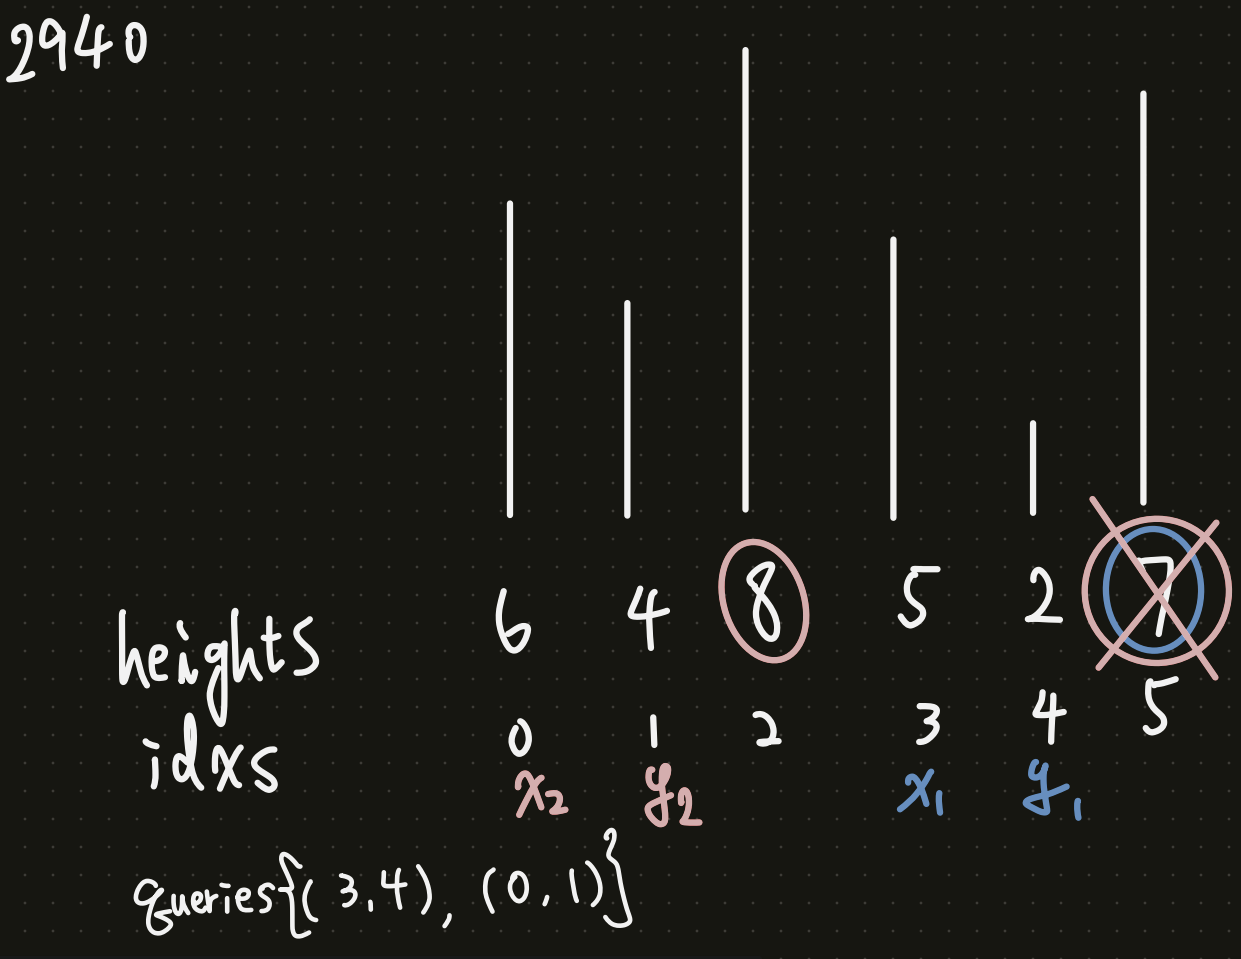 2940
heights 6 4 8 5 2 7
idxs 0 1 2 3 4 5
x₂ y₂ x₁ y₁
queries{(3,4), (0,1)}